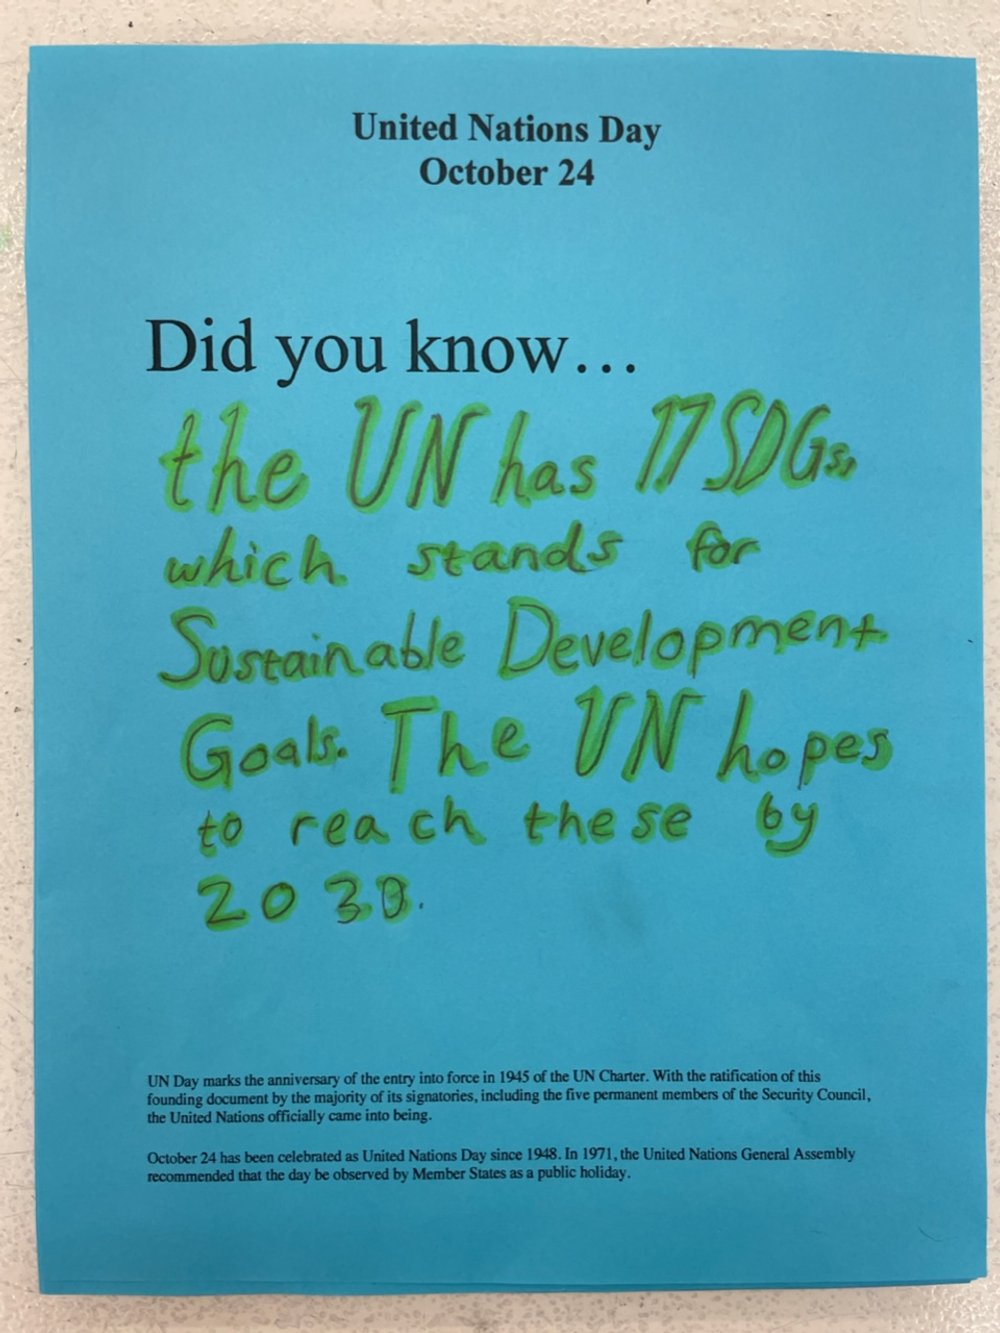 United Nations Day
October 24
Did you know...
the UN has 17 SDGs,
which stands for
Sustainable Development
Goals. The UN hopes
to reach these by
2030.
UN Day marks the anniversary of the entry into force in 1945 of the UN Charter. With the ratification of this
founding document by the majority of its signatories, including the five permanent members of the Security Council,
the United Nations officially came into being.
October 24 has been celebrated as United Nations Day since 1948. In 1971, the United Nations General Assembly
recommended that the day be observed by Member States as a public holiday.